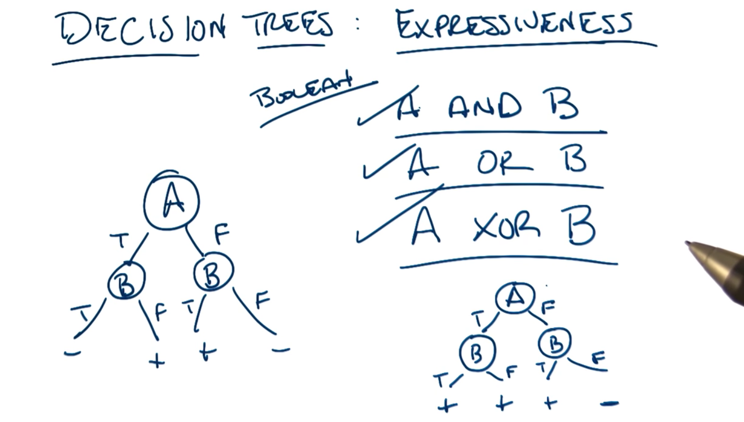 DECISION TREES : EXPRESSIVENESS
BOOLEAN
A AND B
A OR B
A XOR B
A
T F
B B
T F T F
- + + -
A
T F
B B
T F T F
+ + + -